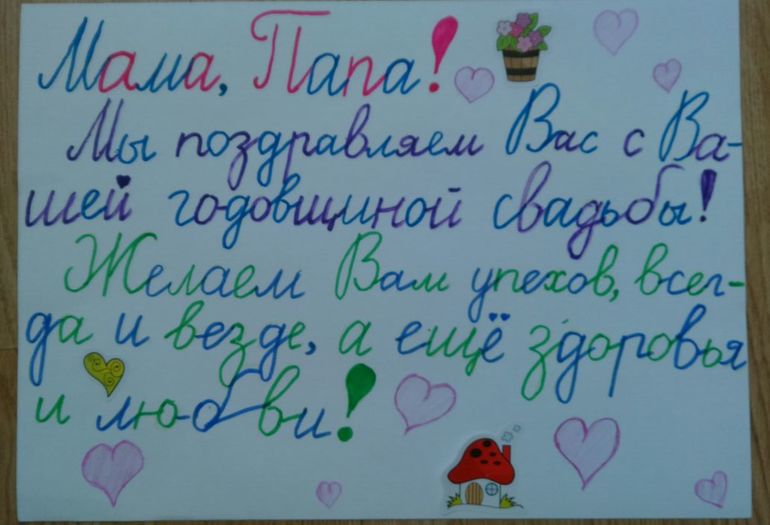 Мама, Папа!
Мы поздравляем Вас с Ва-
шей годовщиной свадьбы!
Желаем Вам упехов, всег-
да и везде, а ещё здоровья
и любви!